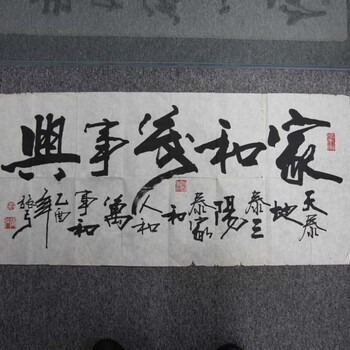 家和萬事興
天泰地泰三陽泰家和人和萬事和
乙酉年